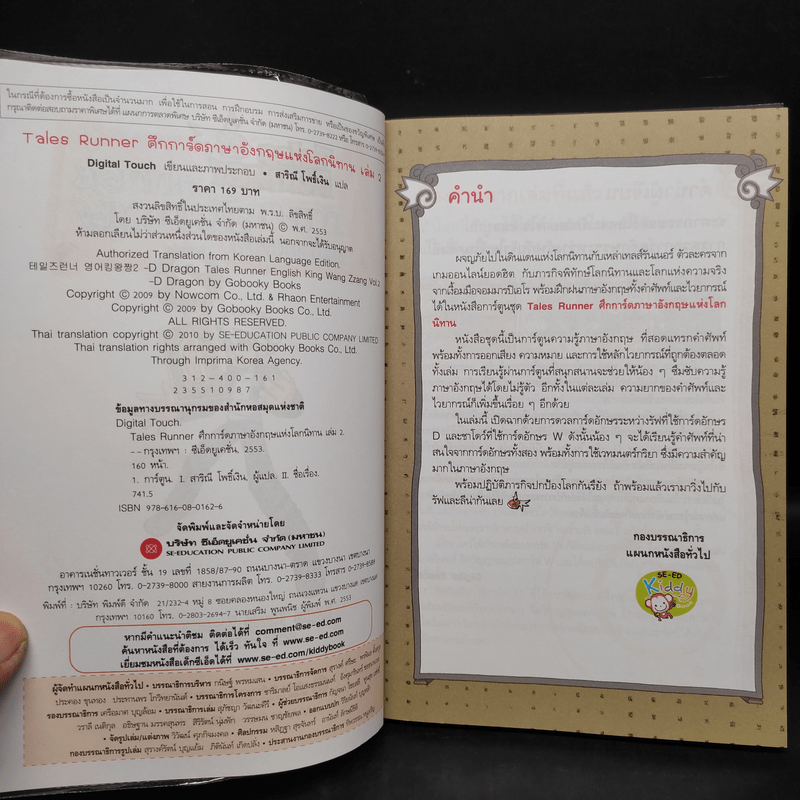 ในกรณีที่ต้องการซื้อหนังสือเป็นจำนวนมาก เพื่อใช้ในการสอน การฝึกอบรม การส่งเสริมการขาย หรือเป็นของขวัญพิเศษ
กรุณาติดต่อสอบถามราคาพิเศษได้ที่ แผนกการตลาดพิเศษ บริษัท ซีเอ็ดยูเคชั่น จำกัด (มหาชน) โทร. 0-2739-8222 หรือ
Tales Runner ศึกการ์ดภาษาอังกฤษแห่งโลกนิทาน เล่ม 2
Digital Touch เขียนและภาพประกอบ • สาริณี โพธิ์เงิน แปล
ราคา 169 บาท
สงวนลิขสิทธิ์ในประเทศไทยตาม พ.ร.บ. ลิขสิทธิ์
โดย บริษัท ซีเอ็ดยูเคชั่น จำกัด (มหาชน) © พ.ศ. 2553
ห้ามลอกเลียนไม่ว่าส่วนหนึ่งส่วนใดของหนังสือเล่มนี้ นอกจากจะได้รับอนุญาต
Authorized Translation from Korean Language Edition.
테일즈런너 영어킹왕짱2 -D Dragon Tales Runner English King Wang Zzang Vol.2
-D Dragon by Gobooky Books
Copyright © 2009 by Nowcom Co., Ltd. & Rhaon Entertainment
Copyright © 2009 by Gobooky Books Co., Ltd.
ALL RIGHTS RESERVED.
Thai translation copyright © 2010 by SE-EDUCATION PUBLIC COMPANY LIMITED
Thai translation rights arranged with Gobooky Books Co., Ltd.
Through Imprima Korea Agency.
312-400-161
2 3 5 5 1 0 9 8 7
ข้อมูลทางบรรณานุกรมของสำนักหอสมุดแห่งชาติ
Digital Touch.
Tales Runner ศึกการ์ดภาษาอังกฤษแห่งโลกนิทาน เล่ม 2.
--กรุงเทพฯ : ซีเอ็ดยูเคชั่น, 2553.
160 หน้า.
1. การ์ตูน. I. สาริณี โพธิ์เงิน, ผู้แปล. II. ชื่อเรื่อง.
741.5
ISBN 978-616-08-0162-6
จัดพิมพ์และจัดจำหน่ายโดย
บริษัท ซีเอ็ดยูเคชั่น จำกัด (มหาชน)
SE-EDUCATION PUBLIC COMPANY LIMITED
อาคารเนชั่นทาวเวอร์ ชั้น 19 เลขที่ 1858/87-90 ถนนบางนา-ตราด แขวงบางนา เขตบางนา
กรุงเทพฯ 10260 โทร. 0-2739-8000 สายงานการผลิต โทร. 0-2739-8333 โทรสาร
พิมพ์ที่ : บริษัท พิมพ์ดี จำกัด 21/232-4 หมู่ 8 ซอยคลองหนองใหญ่ ถนนวงแหวน แขวงบางแค เขตบางแค
กรุงเทพฯ 10160 โทร. 0-2803-2694-7 นายเสริม พูนพนิช ผู้พิมพ์ พ.ศ. 2553
หากมีคำแนะนำติชม ติดต่อได้ที่ comment@se-ed.com
ค้นหาหนังสือที่ต้องการ ได้เร็ว ทันใจ ที่ www.se-ed.com
เยี่ยมชมหนังสือเด็กซีเอ็ดได้ที่ www.se-ed.com/kiddybook
คำนำ
ผจญภัยไปในดินแดนแห่งโลกนิทานกับเหล่าเทลส์รันเนอร์ ตัวละครจาก
เกมออนไลน์ยอดฮิต กับภารกิจพิทักษ์โลกนิทานและโลกแห่งความจริง
จากเงื้อมมือจอมมารปิเอโร พร้อมฝึกฝนภาษาอังกฤษทั้งคำศัพท์และไวยากรณ์
ได้ในหนังสือการ์ตูนชุด Tales Runner ศึกการ์ดภาษาอังกฤษแห่งโลก
นิทาน
หนังสือชุดนี้เป็นการ์ตูนความรู้ภาษาอังกฤษ ที่สอดแทรกคำศัพท์
พร้อมทั้งการออกเสียง ความหมาย และการใช้หลักไวยากรณ์ที่ถูกต้องตลอด
ทั้งเล่ม การเรียนรู้ผ่านการ์ตูนที่สนุกสนานจะช่วยให้น้อง ๆ ซึมซับความรู้
ภาษาอังกฤษได้โดยไม่รู้ตัว อีกทั้งในแต่ละเล่ม ความยากของคำศัพท์และ
ไวยากรณ์ก็เพิ่มขึ้นเรื่อย ๆ อีกด้วย
ในเล่มนี้ เปิดฉากด้วยการดวลการ์ดอักษรระหว่างรัฟที่ใช้การ์ดอักษร
D และชาโดว์ที่ใช้การ์ดอักษร W ดังนั้นน้อง ๆ จะได้เรียนรู้คำศัพท์ที่น่า
สนใจจากการ์ดอักษรทั้งสอง พร้อมทั้งการใช้เวทมนตร์กริยา ซึ่งมีความสำคัญ
มากในภาษาอังกฤษ
พร้อมปฏิบัติภารกิจปกป้องโลกกันรึยัง ถ้าพร้อมแล้วเรามาวิ่งไปกับ
รัฟและลีน่ากันเลย
กองบรรณาธิการ
แผนกหนังสือทั่วไป
SE-ED
Kiddy